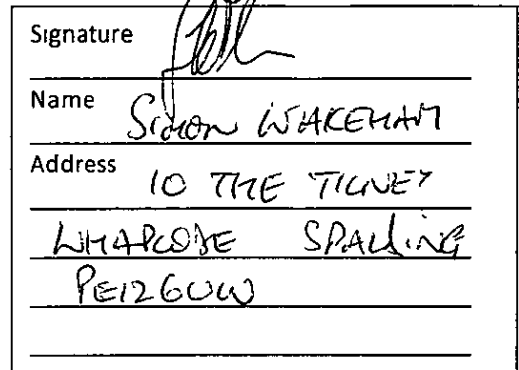 Signature
Name Simon WAKEHAM
Address 10 THE TIGNEY
WHAPLODE SPALDING
PE12 6UW